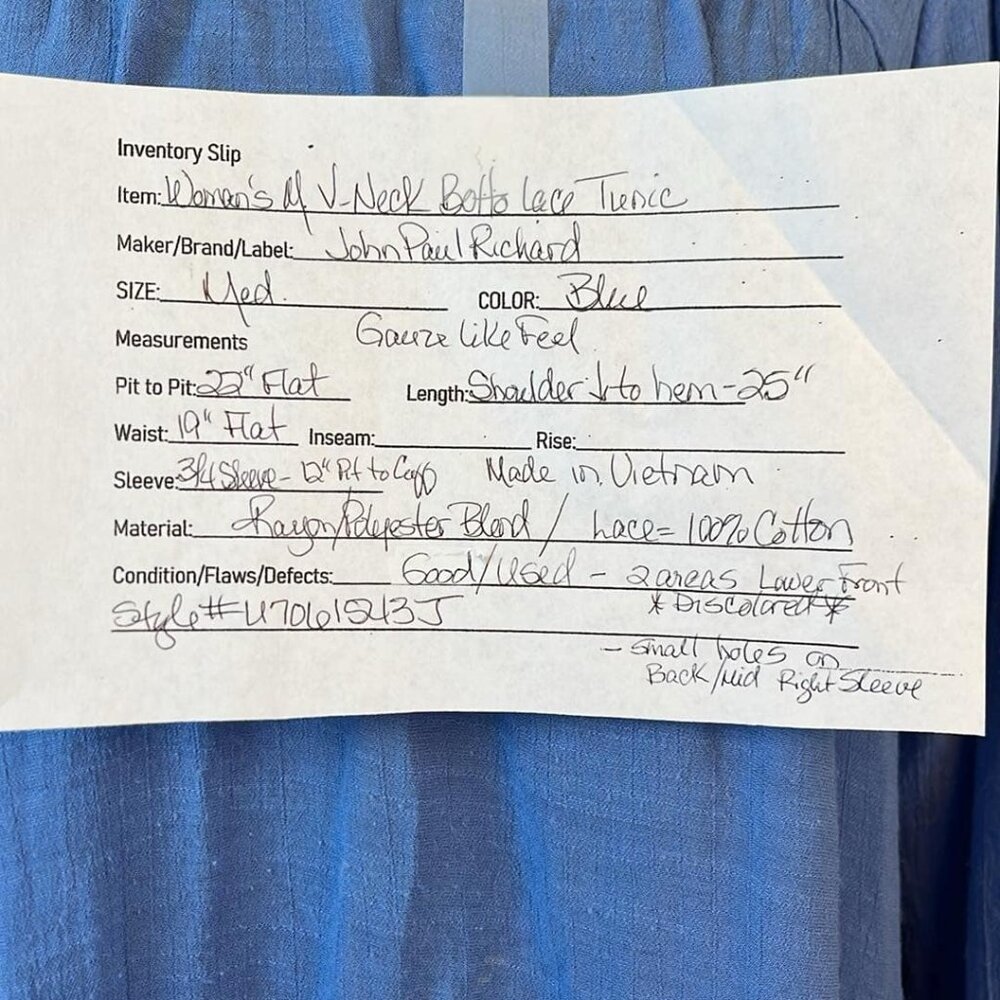 Inventory Slip
Item: Woman's M V-Neck Botto Lace Tunic
Maker/Brand/Label: John Paul Richard
SIZE: Med. COLOR: Blue
Measurements Gauze Like Feel
Pit to Pit: 22" Flat Length: Shoulder ↓ to hem - 25"
Waist: 19" Flat Inseam: Rise:
Sleeve: 3/4 Sleeve - 12" Pit to Cuff Made in Vietnam
Material: Rayon/Polyester Blend / Lace = 100% Cotton
Condition/Flaws/Defects: Good/Used - 2 areas Lower Front
Style# *Discolored*
- small holes on
Back/Mid Right Sleeve